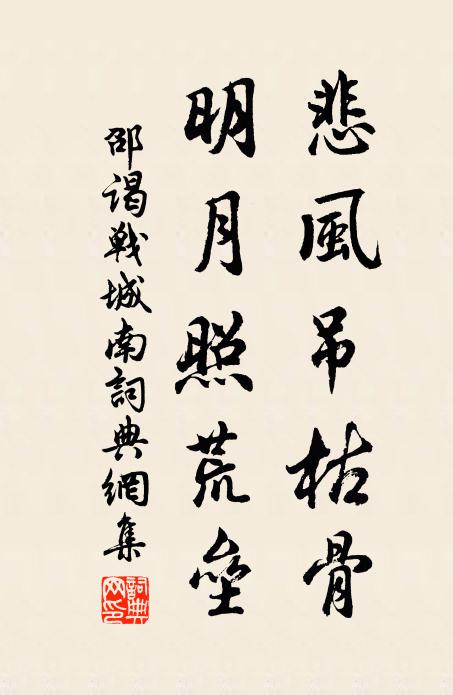 悲風吊枯骨
明月照荒壘
邵谒戰城南詞典網集
詞典網印